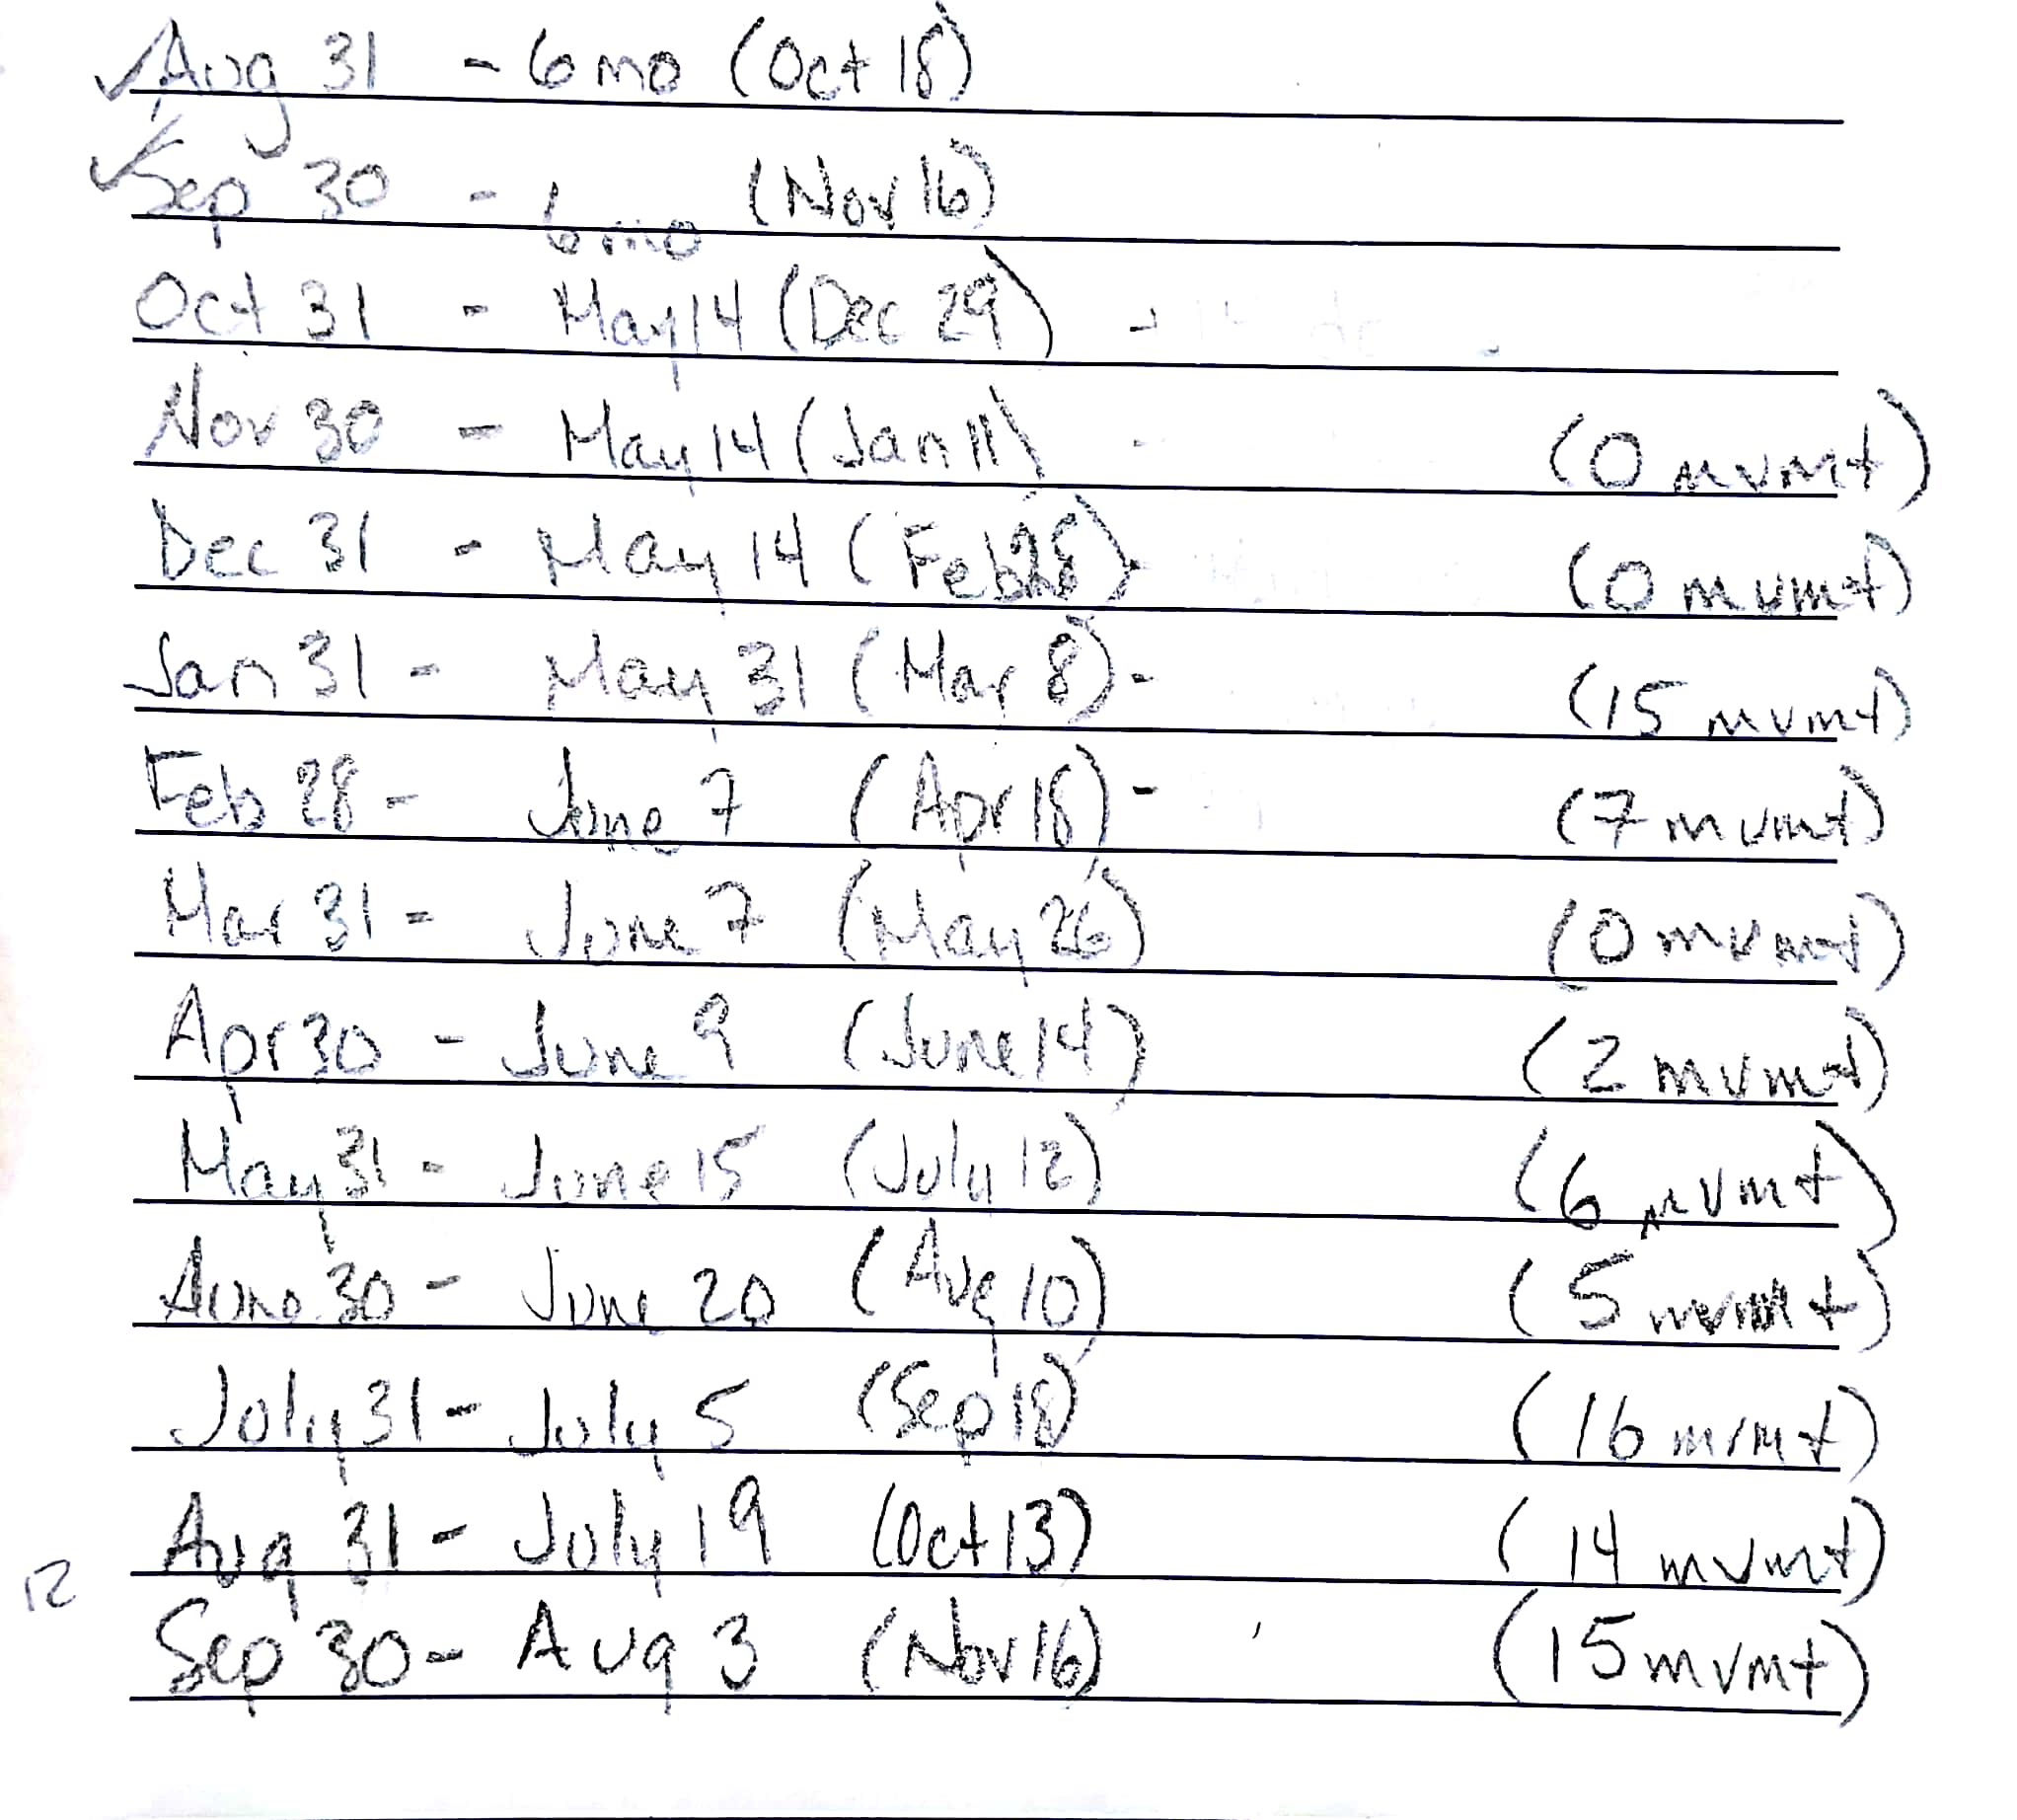 ✓Aug 31 - 6 mo (Oct 18)
✓Sep 30 - 6 mo (Nov 16)
Oct 31 - May 14 (Dec 29) -
Nov 30 - May 14 (Jan 11) - (0 mvmt)
Dec 31 - May 14 (Feb 28) - (0 mvmt)
Jan 31 - May 31 (Mar 8) - (15 mvmt)
Feb 28 - June 7 (Apr 18) - (7 mvmt)
Mar 31 - June 7 (May 26) (0 mvmt)
Apr 30 - June 9 (June 14) (2 mvmt)
May 31 - June 15 (July 12) (6 mvmt)
June 30 - June 20 (Aug 10) (5 mvmt)
July 31 - July 5 (Sep 18) (16 mvmt)
Aug 31 - July 19 (Oct 13) (14 mvmt)
12
Sep 30 - Aug 3 (Nov 16) (15 mvmt)